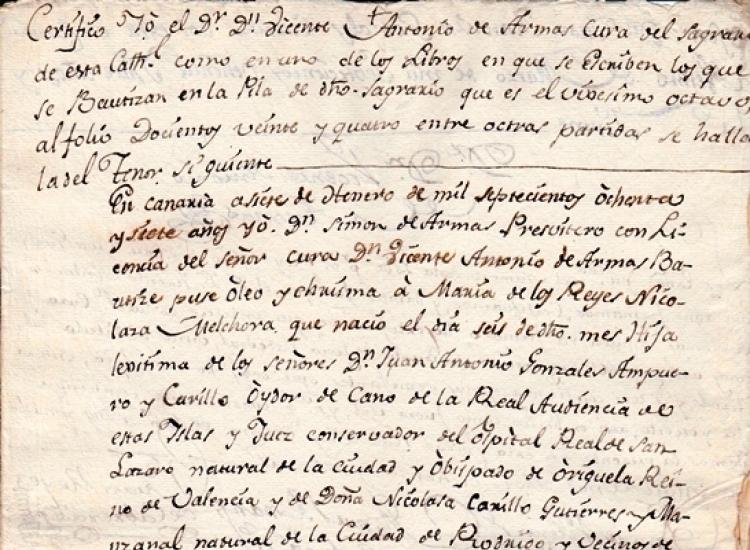 Certifico Yo el Dr. Dn. Vicente Antonio de Armas Cura del Sagrario
de esta Cathl. como en uno de los Libros en que se Escriben los que
se Bautizan en la Pila de dho. Sagrario que es el vixesimo octavo,
al folio Docientos veinte y quatro entre octras partidas se halla
la del Tenor siguiente
En canaria a siete de Henero de mil septecientos òchenta
y siete años yò. Dn. Simon de Armas Presvitero con Li-
cencia del señor cura Dn. Vicente Antonio de Armas Ba-
utize puse Òleo y chrisma à Maria de los Reyes Nico-
laza Melchora que nacio el dia seis de dho. mes Hija
lexitima de los señores Dn. Juan Antonio Gonzales Ampue-
ro y Carillo Òydor de Cano de la Real Audiencia de
estas Islas y Juez conservador del Ospital Real de San
Lazaro natural de la ciudad y Òbispado de Òriguela Rei-
no de Valencia y de Doña Nicolasa Carillo Gutierres y Ma-
nzanal natural de la Ciudad de Rodrigo y Vecinos de